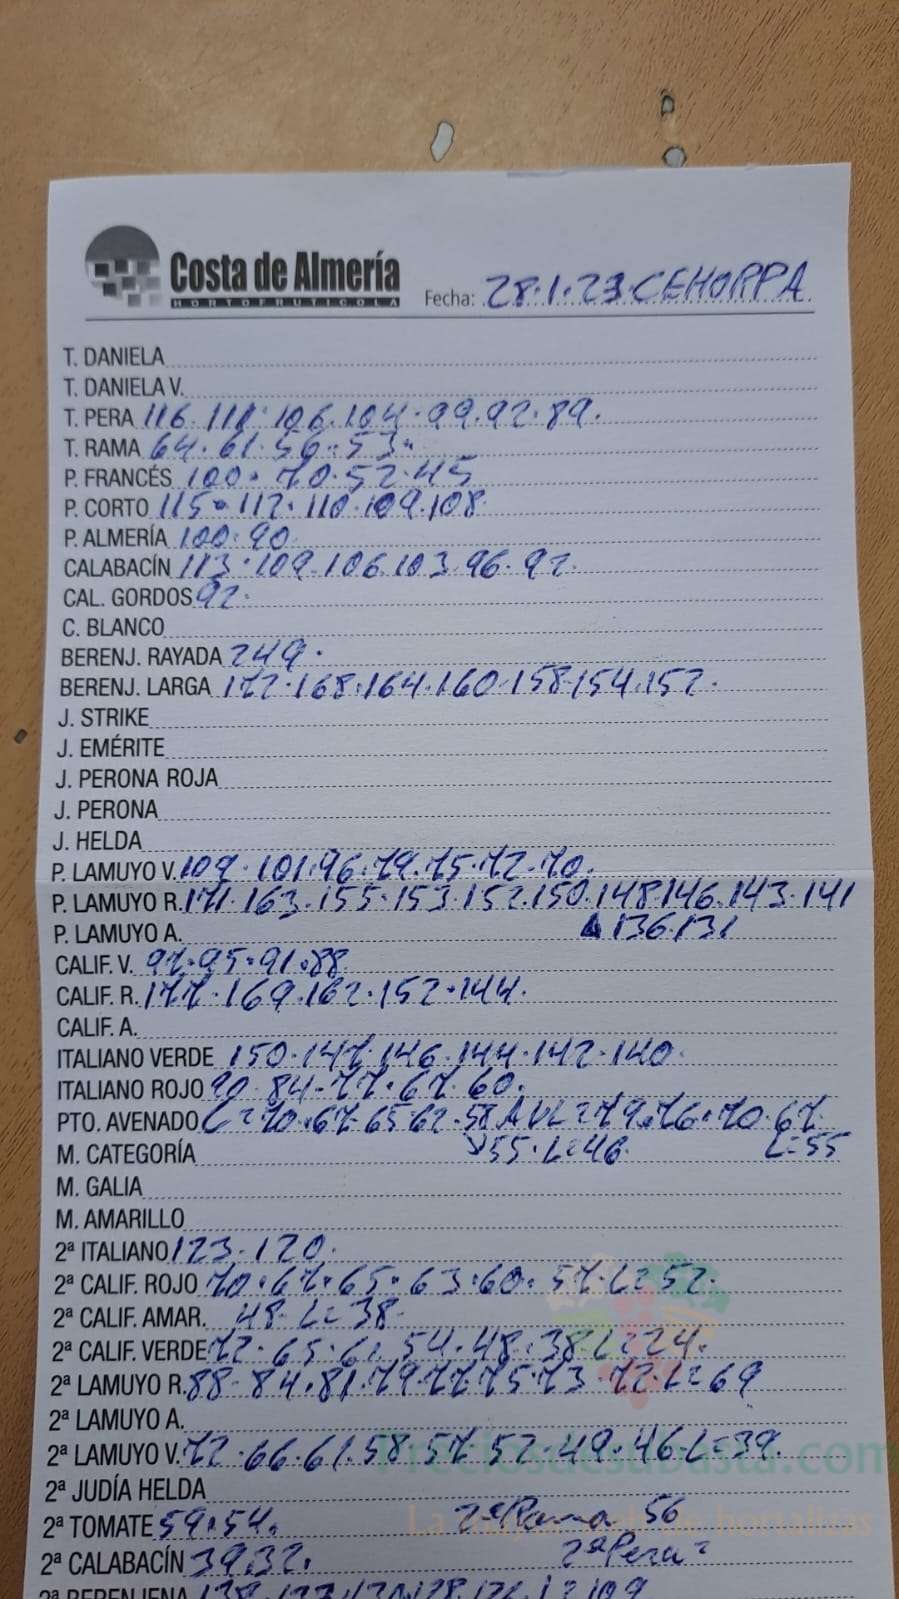 Costa de Almería
HORTOFRUTICOLA
Fecha: 28.1.23.CEHORPA
T. DANIELA
T. DANIELA V.
T. PERA 116.111.106.104.99.92.89.
T. RAMA 64.61.56.53.
P. FRANCÉS 100.70.52.45
P. CORTO 115.112.110.109.108
P. ALMERÍA 100.90
CALABACÍN 113.109.106.103.96.92.
CAL. GORDOS 92.
C. BLANCO
BERENJ. RAYADA 249.
BERENJ. LARGA 172.168.164.160.158.154.152.
J. STRIKE
J. EMÉRITE
J. PERONA ROJA
J. PERONA
J. HELDA
P. LAMUYO V. 109.101.96.79.75.72.70.
P. LAMUYO R. 171.163.155.153.152.150.148.146.143.141
P. LAMUYO A. 136.131
CALIF. V. 97.95.91.88
CALIF. R. 177.169.162.152.144.
CALIF. A.
ITALIANO VERDE 150.147.146.144.142.140.
ITALIANO ROJO 90.84-77.67.60.
PTO. AVENADO L=70.67.65.62.58 AVL=79.76.70.67
M. CATEGORÍA 55.L=46. L=55
M. GALIA
M. AMARILLO
2ª ITALIANO 123.120.
2ª CALIF. ROJO 70.67.65.63.60.57.L=52.
2ª CALIF. AMAR. 48.L=38
2ª CALIF. VERDE 72.65.61.54.48.38L=24.
2ª LAMUYO R. 88-84.81.79.77.75.73 72.L=69
2ª LAMUYO A.
2ª LAMUYO V. 72.66.61.58.57.52.49.46L=39
Preciosdesubasta.com
2ª JUDÍA HELDA
2ª TOMATE 59.54. 2ª Rama 56
La mejor web de hortalizas
2ª CALABACÍN 39.32. 2ª Pera=
2ª BERENJENA L=109